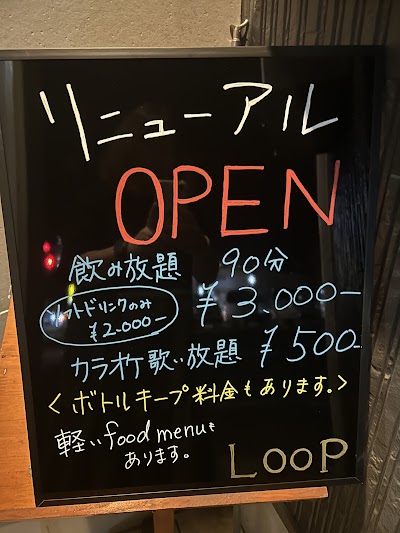 リニューアル
OPEN
飲み放題 90分
ソフトドリンクのみ
¥2.000-
¥3.000-
カラオケ歌い放題 ¥500-
<ボトルキープ料金もあります。>
軽いfood menuも
あります。
LOOP